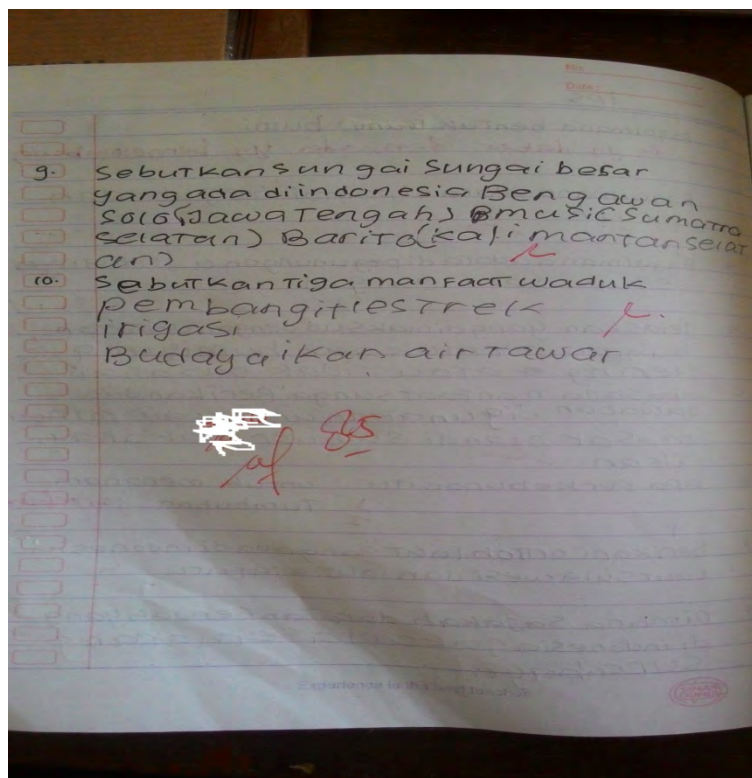 No.
Date:
9. Sebutkan sungai sungai besar
yang ada diindonesia Bengawan
Solo (Jawa Tengah) musi (Sumatra
Selatan) Barito (kalimantan selat
an)
10. Sebutkan Tiga manfaat waduk
Pembangitlestrek
irigasi
Budaya ikan air Tawar
85